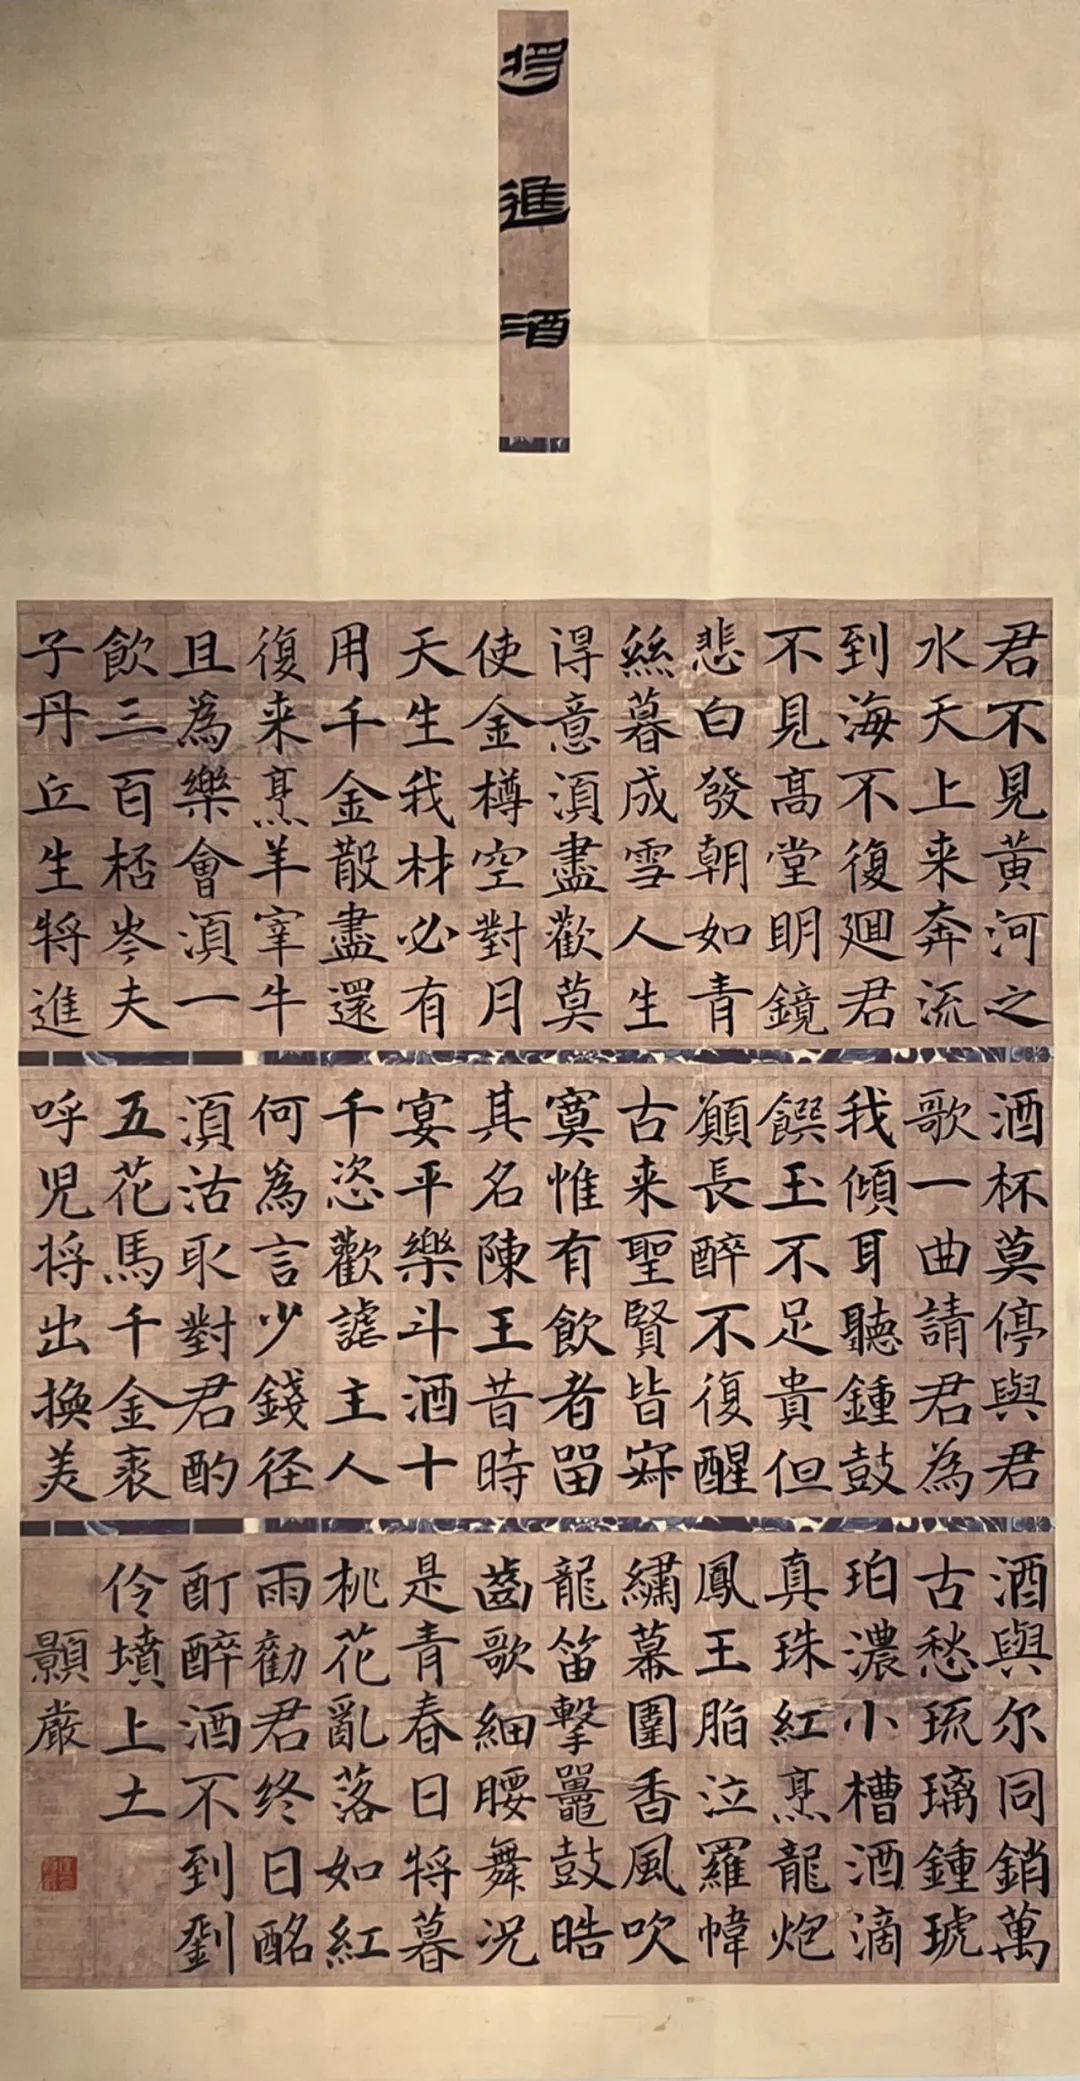 将進酒
君不見黄河之
水天上来奔流
到海不復廻君
不見髙堂明鏡
悲白發朝如青
絲暮成雪人生
得意湏盡歡莫
使金樽空對月
天生我材必有
用千金散盡還
復来烹羊宰牛
且為樂會湏一
飲三百桮岑夫
子丹丘生将進
酒杯莫停與君
歌一曲請君為
我傾耳聽鍾鼓
饌玉不足貴但
願長醉不復醒
古来聖賢皆寂
寞惟有飲者留
其名陳王昔時
宴平樂斗酒十
千恣歡謔主人
何為言少錢径
湏沽取對君酌
五花馬千金裘
呼児将出換美
酒與尔同銷萬
古愁琉璃鍾琥
珀濃小槽酒滴
真珠紅烹龍炮
鳳王脂泣羅幃
繡幕圍香風吹
龍笛擊鼉鼓皓
齒歌細腰舞况
是青春日将暮
桃花亂落如紅
雨勸君终日酩
酊醉酒不到劉
伶墳上土
顥嚴